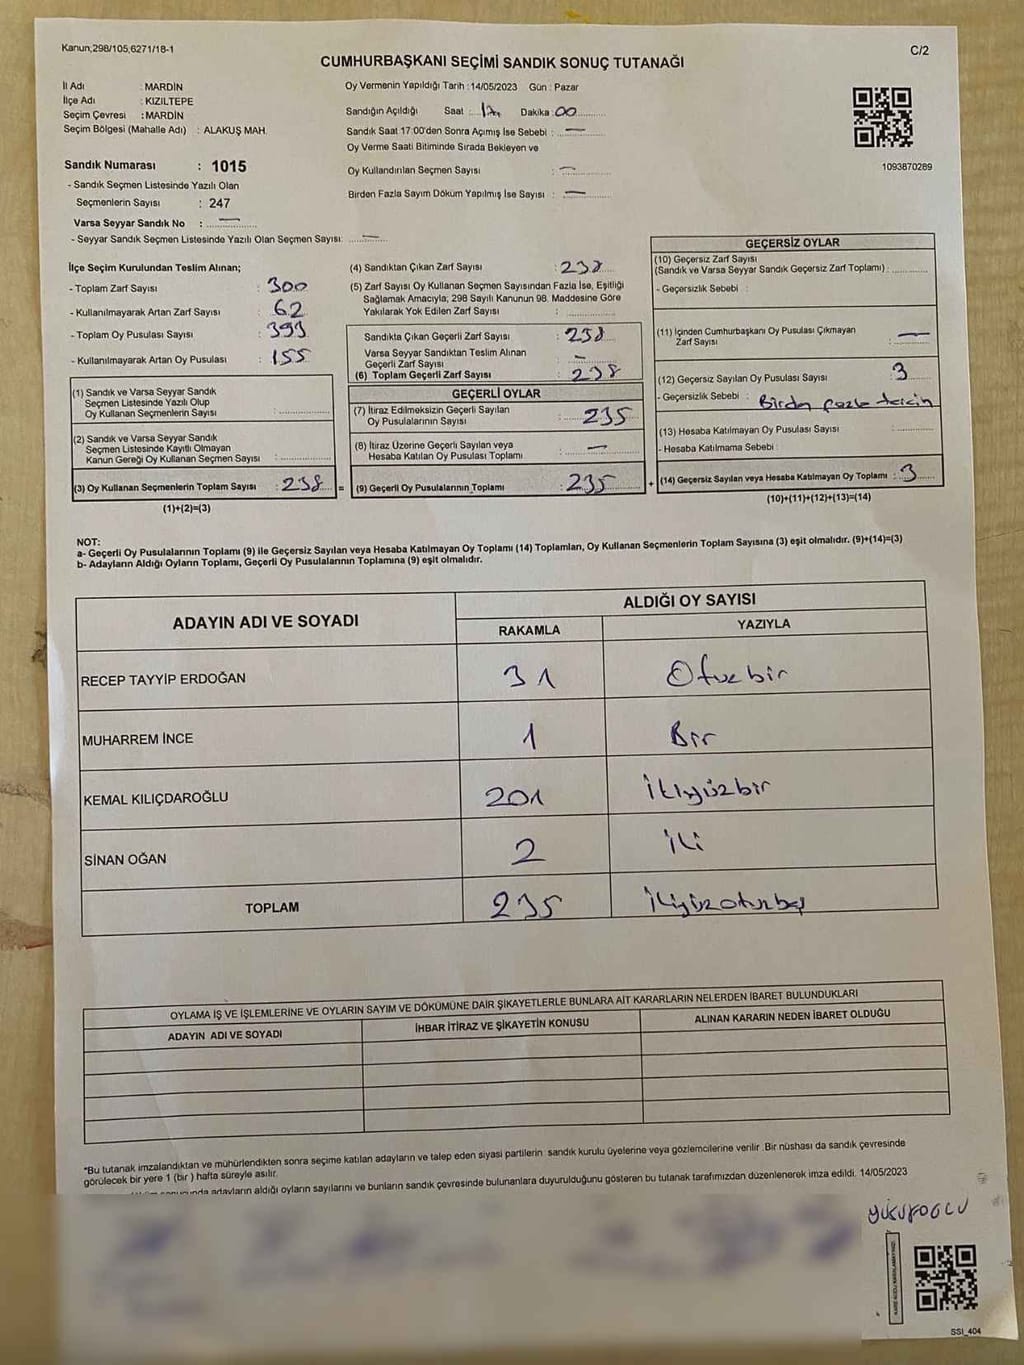 Kanun;298/105,6271/18-1
C/2
CUMHURBAŞKANI SEÇİMİ SANDIK SONUÇ TUTANAĞI
İl Adı : MARDİN
İlçe Adı : KIZILTEPE
Seçim Çevresi : MARDİN
Seçim Bölgesi (Mahalle Adı) : ALAKUŞ MAH.
Oy Vermenin Yapıldığı Tarih : 14/05/2023 Gün : Pazar
Sandığın Açıldığı Saat : 17 Dakika : 00
Sandık Saat 17:00'den Sonra Açımış İse Sebebi : —
Oy Verme Saati Bitiminde Sırada Bekleyen ve
Oy Kullandırılan Seçmen Sayısı : —
Birden Fazla Sayım Döküm Yapılmış İse Sayısı : —
1093870289
Sandık Numarası : 1015
- Sandık Seçmen Listesinde Yazılı Olan
Seçmenlerin Sayısı : 247
Varsa Seyyar Sandık No : —
- Seyyar Sandık Seçmen Listesinde Yazılı Olan Seçmen Sayısı: —
İlçe Seçim Kurulundan Teslim Alınan;
- Toplam Zarf Sayısı : 300
- Kullanılmayarak Artan Zarf Sayısı : 62
- Toplam Oy Pusulası Sayısı : 393
- Kullanılmayarak Artan Oy Pusulası : 155
(1) Sandık ve Varsa Seyyar Sandık
Seçmen Listesinde Yazılı Olup
Oy Kullanan Seçmenlerin Sayısı :
(2) Sandık ve Varsa Seyyar Sandık
Seçmen Listesinde Kayıtlı Olmayan
Kanun Gereği Oy Kullanan Seçmen Sayısı :
(3) Oy Kullanan Seçmenlerin Toplam Sayısı : 238 =
(1)+(2)=(3)
(4) Sandıktan Çıkan Zarf Sayısı : 238
(5) Zarf Sayısı Oy Kullanan Seçmen Sayısından Fazla İse, Eşitliği
Sağlamak Amacıyla; 298 Sayılı Kanunun 98. Maddesine Göre
Yakılarak Yok Edilen Zarf Sayısı :
Sandıkta Çıkan Geçerli Zarf Sayısı : 238
Varsa Seyyar Sandıktan Teslim Alınan
Geçerli Zarf Sayısı : —
(6) Toplam Geçerli Zarf Sayısı : 238
GEÇERLİ OYLAR
(7) İtiraz Edilmeksizin Geçerli Sayılan
Oy Pusulalarının Sayısı : 235
(8) İtiraz Üzerine Geçerli Sayılan veya
Hesaba Katılan Oy Pusulası Toplamı : —
(9) Geçerli Oy Pusulalarının Toplamı : 235 +
GEÇERSİZ OYLAR
(10) Geçersiz Zarf Sayısı
(Sandık ve Varsa Seyyar Sandık Geçersiz Zarf Toplamı) :
- Geçersizlik Sebebi :
(11) İçinden Cumhurbaşkanı Oy Pusulası Çıkmayan
Zarf Sayısı : —
(12) Geçersiz Sayılan Oy Pusulası Sayısı : 3
- Geçersizlik Sebebi : Birden fazla tercih
(13) Hesaba Katılmayan Oy Pusulası Sayısı :
- Hesaba Katılmama Sebebi :
(14) Geçersiz Sayılan veya Hesaba Katılmayan Oy Toplamı : 3
(10)+(11)+(12)+(13)=(14)
NOT:
a- Geçerli Oy Pusulalarının Toplamı (9) ile Geçersiz Sayılan veya Hesaba Katılmayan Oy Toplamı (14) Toplamları, Oy Kullanan Seçmenlerin Toplam Sayısına (3) eşit olmalıdır. (9)+(14)=(3)
b- Adayların Aldığı Oyların Toplamı, Geçerli Oy Pusulalarının Toplamına (9) eşit olmalıdır.
ADAYIN ADI VE SOYADI
ALDIĞI OY SAYISI
RAKAMLA
YAZIYLA
RECEP TAYYİP ERDOĞAN 31 Otuzbir
MUHARREM İNCE 1 Bir
KEMAL KILIÇDAROĞLU 201 İkiyüzbir
SİNAN OĞAN 2 iki
TOPLAM 235 ikiyüzotuzbeş
OYLAMA İŞ VE İŞLEMLERİNE VE OYLARIN SAYIM VE DÖKÜMÜNE DAİR ŞİKAYETLERLE BUNLARA AİT KARARLARIN NELERDEN İBARET BULUNDUKLARI
ADAYIN ADI VE SOYADI
İHBAR İTİRAZ VE ŞİKAYETİN KONUSU
ALINAN KARARIN NEDEN İBARET OLDUĞU
*Bu tutanak imzalandıktan ve mühürlendikten sonra seçime katılan adayların ve talep eden siyasi partilerin sandık kurulu üyelerine veya gözlemcilerine verilir. Bir nüshası da sandık çevresinde
görülecek bir yere 1 (bir) hafta süreyle asılır.
adayların aldığı oyların sayılarını ve bunların sandık çevresinde bulunanlara duyurulduğunu gösteren bu tutanak tarafımızdan düzenlenerek imza edildi. 14/05/2023
SSI_404